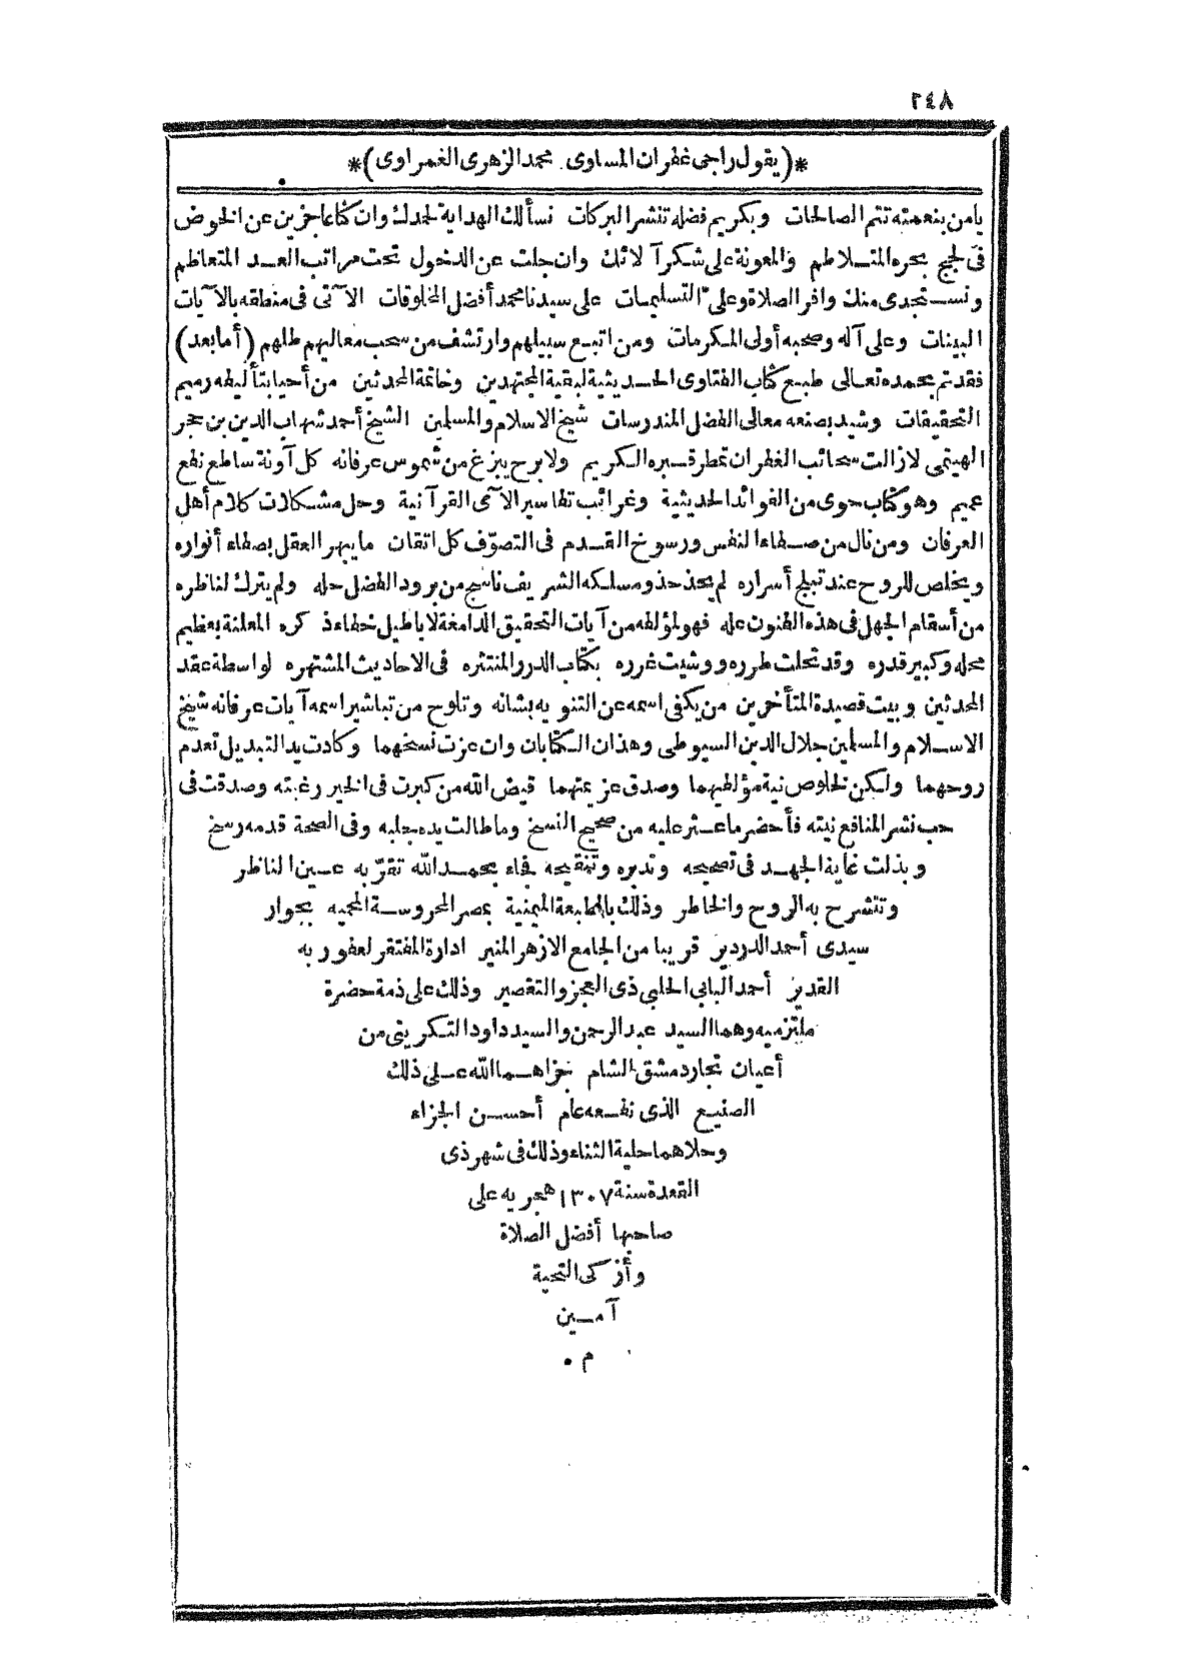 ٢٤٨
*(يقول راجى غفران المساوى محمد الزهرى الغمراوى)*
يا من بنعمته تتم الصالحات وبكريم فضله تنشر البركات نسألك الهداية لحمدك وان كنا عاجزين عن الخوض
فى لجج بحره المتلاطم والمعونة على شكر آلائك وان جلت عن الدخول تحت مراتب العد المتعاظم
ونستجدى منك وافر الصلاة وعلى التسليمات على سيدنا محمد أفضل المخلوقات الآتى فى منطقه بالآيات
البينات وعلى آله وصحبه أولى المكرمات ومن اتبع سبيلهم وارتشف من سحب معاليهم طلهم (أما بعد)
فقد تم بحمده تعالى طبع كتاب الفتاوى الحديثية لبقية المجتهدين وخاتمة المحدثين من أحيا بتأليفه رميم
التحقيقات وشيد بصنعه معالى الفضل المندرسات شيخ الاسلام والمسلمين الشيخ أحمد شهاب الدين بن حجر
الهيتمى لازالت سحائب الغفران تمطر قبره الكريم ولا برح يبزغ من شموس عرفانه كل آونة ساطع نفع
عميم وهو كتاب حوى من الفوائد الحديثية وغرائب تفاسير الآى القرآنية وحل مشكلات كلام أهل
العرفان ومن نال من صفاء النفس ورسوخ القدم فى التصوّف كل اتقان ما يبهر العقل بصفاء أنواره
ويخلص للروح عند تبلج أسراره لم يحذ حذو مسلكه الشريف ناسج من برود الفضل حله ولم يترك لناظره
من أسقام الجهل فى هذه الفنون عله فهو لمؤلفه من آيات التحقيق الدامغة لاباطيل خفاء ذكره المعلنة بعظيم
محله وكبير قدره وقد تحلت طرره ووشيت غرره بكتاب الدرر المنتثره فى الاحاديث المشتهره لواسطة عقد
المحدثين وبيت قصيدة المتأخرين من يكفى اسمه عن التنويه بشانه وتلوح من تباشير اسمه آيات عرفانه شيخ
الاسلام والمسلمين جلال الدين السيوطى وهذان الكتابان وان عزت نسخهما وكادت يد التبديل تعدم
روحهما ولكن لخلوص نية مؤلفيهما وصدق عزيمتهما قيض الله من كبرت فى الخير رغبته وصدقت فى
حب نشر المنافع نيته فأحضر ما عثر عليه من صحيح النسخ وما طالت يده بجلبه وفى الصحة قدمه رسخ
وبذلت غاية الجهد فى تصحيحه وتدبره وتنقيحه فجاء بحمد الله تقرّ به عين الناظر
وتنشرح به الروح والخاطر وذلك بالمطبعة الميمنية بمصر المحروسة المحميه بجوار
سيدى أحمد الدردير قريبا من الجامع الازهر المنير ادارة المفتقر لعفو ربه
القدير أحمد البابى الحلبى ذى العجز والتقصير وذلك على ذمة حضرة
ملتزميه وهما السيد عبد الرحمن والسيد داود التكريتى من
أعيان تجار دمشق الشام جزاهما الله على ذلك
الصنيع الذى نفعه عام أحسن الجزاء
وحلاهما حلية الثناء وذلك فى شهر ذى
القعدة سنة ١٣٠٧ هجريه على
صاحبها أفضل الصلاة
وأزكى التحية
آمين
م